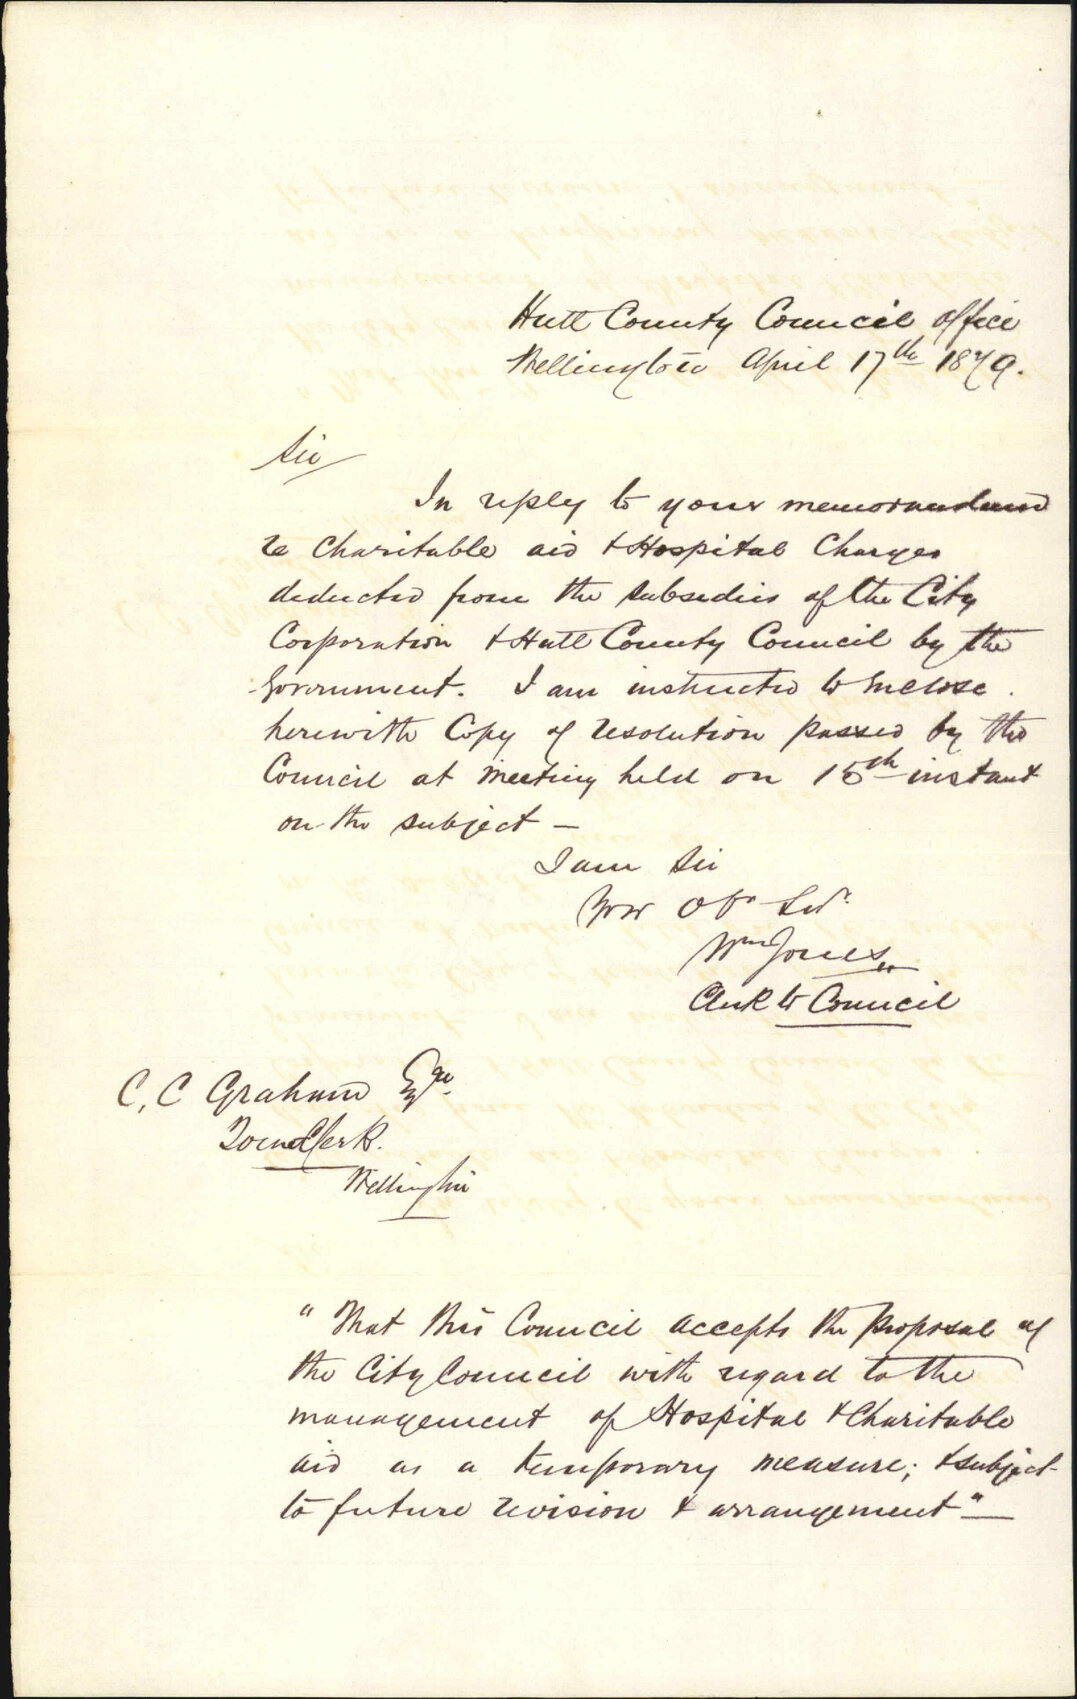 Hutt County Council Office
Wellington April 17th 1879.
Sir
In reply to your memorandum
re Charitable aid & Hospital Charges
deducted from the subsidies of the City
Corporation & Hutt County Council by the
Government. I am instructed to enclose
herewith Copy of resolution passed by the
Council at meeting held on 15th instant
on the subject —
I am Sir
Your Obt Svt.
Wm Jones
Clerk to Council
C. C Graham Esqre.
Town Clerk.
Wellington
"That this Council accepts the proposal of
the City Council with regard to the
management of Hospital & Charitable
aid as a temporary measure; & subject
to future revision & arrangement"